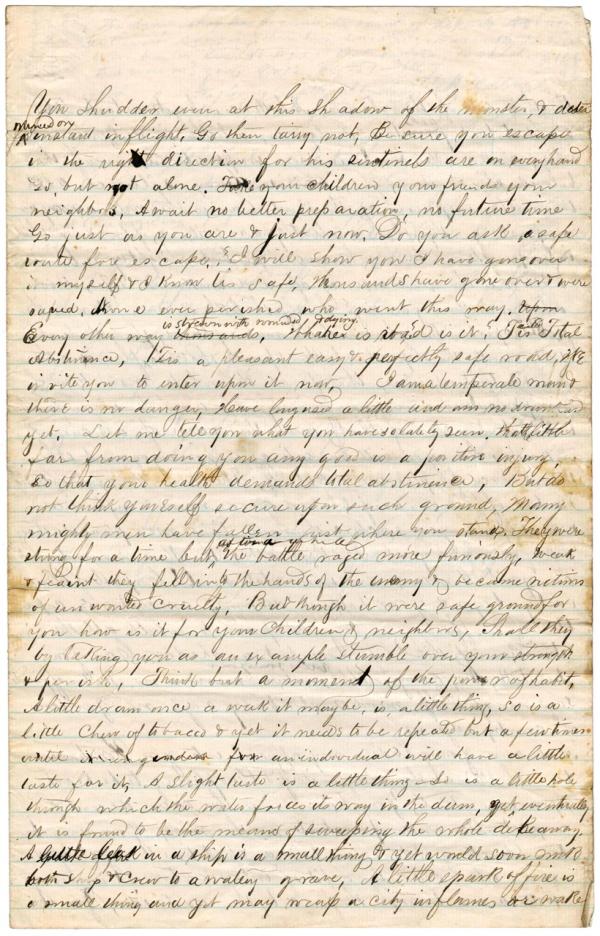 You shudder even at this shadow of the monster, &
instant in flight. Go then tarry not, Be sure you escape
in the right direction for his sentinels are on every hand
Go, but not alone. Take your children your friends your
neighbors, Await no better preparation, no future time
Go just as you are & just now. Do you ask a safe
route for escape. I will show you I have gone over
it myself & I know tis safe, thousands have gone over & were
saved, none ever perished who went this way. Upon
is strewn with wounded & dying
Every other way thousands, What is it? Tis Total
Abstinence, Tis a pleasant easy & perfectly safe road, & I
invite you to enter upon it now, I am a temperate man &
there is no danger, Have long used a little and am no drunkard
yet. Let me tell you what you have so lately seen. that little
far from doing you any good is a positive injury,
So that your health demands total abstinence, But do
not think yourself secure upon such ground, Many
mighty men have fallen just where you stand, They were
after a while
strong for a time but the battle raged more furiously, weak
& faint they fell into the hands of the enemy & became victims
of unwonted cruelty, But though it were safe ground for
you how is it for your Children & neighbors, Shall they
by taking you as an example stumble over your strength
& perish, Think but a moment of the power of habit,
A little dram once a week it may be, is a little thing, so is a
little Chew of tobacco & yet it needs to be repeated but a few times
until an individual will have a little
taste for it, A slight taste is a little thing - So is a little hole
through which the water forces its way in the dam, yet eventually
it is found to be the means of sweeping the whole dike away.
A little leak in a ship is a small thing & yet would soon sink
both ship & Crew to a watery grave, A little spark of fire is
a small thing and yet may wrap a city in flames or wake